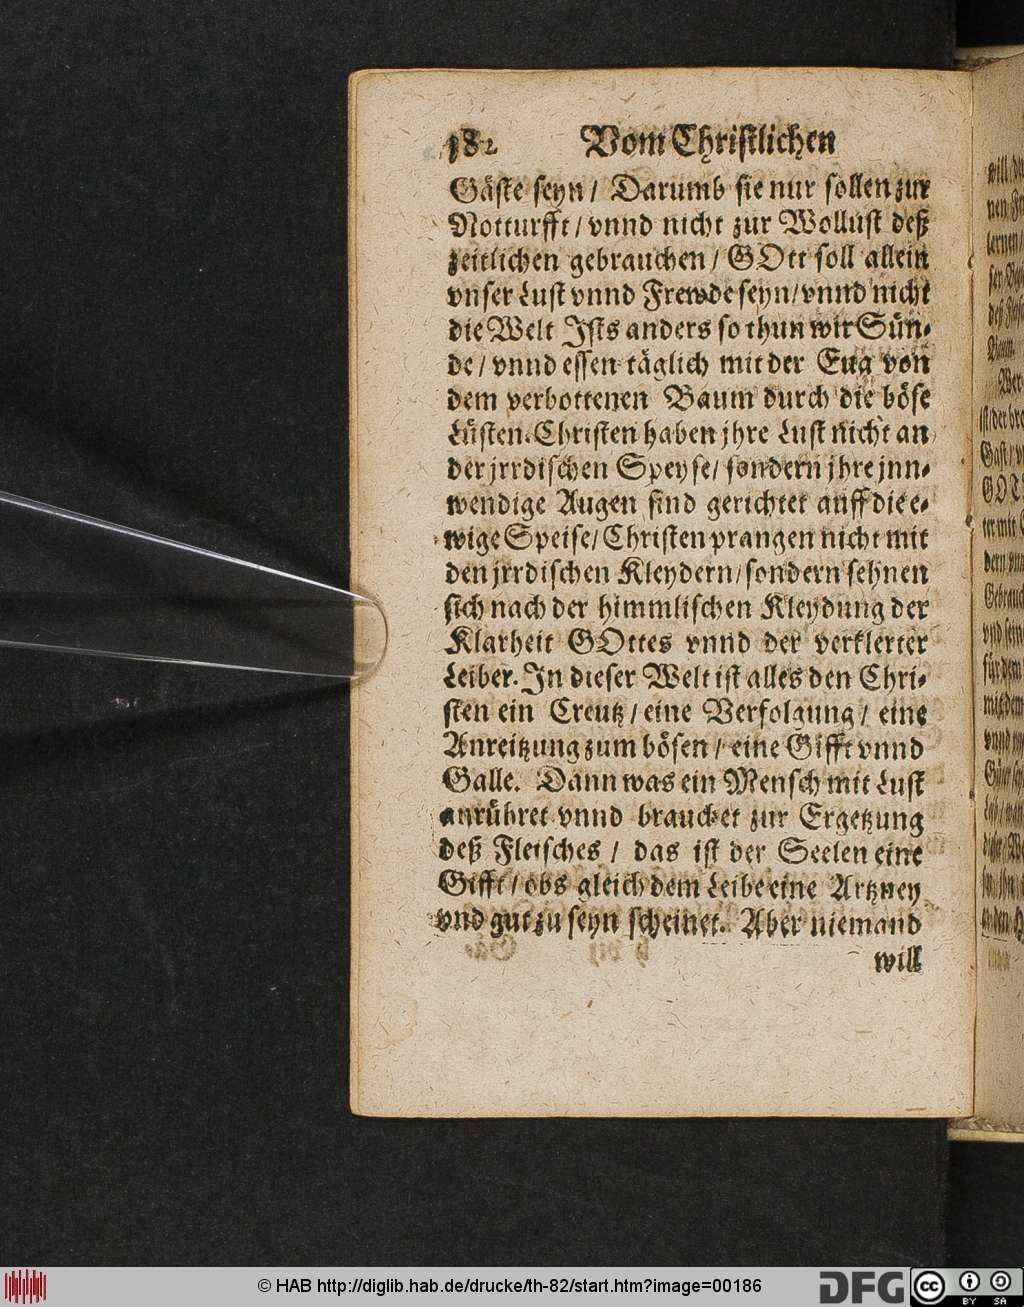 182 Vom Christlichen
Gäste seyn / Darumb sie nur sollen zur
Notturfft / vnnd nicht zur Wollust deß
zeitlichen gebrauchen / GOtt soll allein
vnser Lust vnnd Frewde seyn / vnnd nicht
die Welt Ists anders so thun wir Sün-
de / vnnd essen täglich mit der Eua von
dem verbottenen Baum durch die böse
Lüsten. Christen haben jhre Lust nicht an
der jrrdischen Speyse / sondern jhre jnn-
wendige Augen sind gerichtet auff die e-
wige Speise / Christen prangen nicht mit
den jrrdischen Kleydern / sondern sehnen
sich nach der himmlischen Kleydung der
Klarheit GOttes vnnd der verklerter
Leiber. In dieser Welt ist alles den Chri-
sten ein Creutz / eine Verfolgung / eine
Anreitzung zum bösen / eine Gifft vnnd
Galle. Dann was ein Mensch mit Lust
anrühret vnnd brauchet zur Ergetzung
deß Fleisches / das ist der Seelen eine
Gifft / obs gleich dem Leibe eine Artzney
vnd gut zu seyn scheinet. Aber niemand
will
© HAB http://diglib.hab.de/drucke/th-82/start.htm?image=00186
DFG
cc BY SA